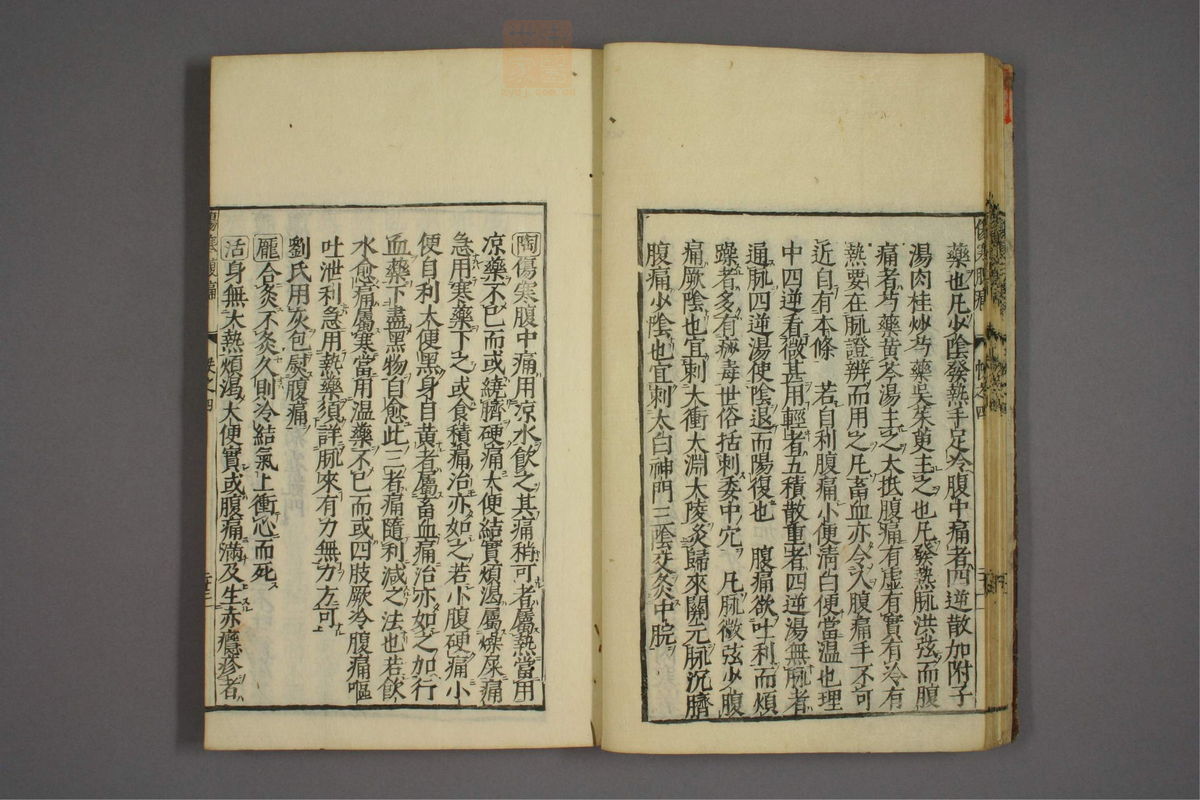 藥也凡少陰發熱手足冷腹中痛者四逆散加附子
湯肉桂炒芍藥吳茱萸主之也凡發熱脉洪弦而腹
痛者芍藥黃芩湯主之大抵腹痛有虚有實有冷有
熱要在脉證辨而用之凡畜血亦令人腹痛手不可
近自有本條 若自利腹痛小便清白便當温也理
中四逆看微甚用輕者五積散重者四逆湯無脉者
通脉四逆湯使陰退而陽復也 腹痛欲吐利而煩
躁者多有痧毒世俗括刺委中穴 凡脉微弦少腹
痛厥陰也宜刺大衝大淵大陵灸歸來關元脉沉臍
腹痛少陰也宜刺太白神門三陰交灸中脘
陶傷寒腹中痛用凉水飲之其痛稍可者屬熱當用
凉藥不已而或繞臍硬痛大便結實煩渴屬燥屎痛
急用寒藥下之或食積痛治亦如之若小腹硬痛小
便自利大便黑身目黃者屬畜血痛治亦如之加行
血藥下盡黑物自愈此三者痛隨利減之法也若飲
水愈痛屬寒當用温藥不已而或四肢厥冷腹痛嘔
吐泄利急用熱藥須詳脉來有力無力方可
劉氏用灰包熨腹痛
龐合灸不灸久則冷結氣上衝心而死
活身無大熱煩渴大便實或腹痛滿及生赤癮疹者
傷寒腹痛
卷之四